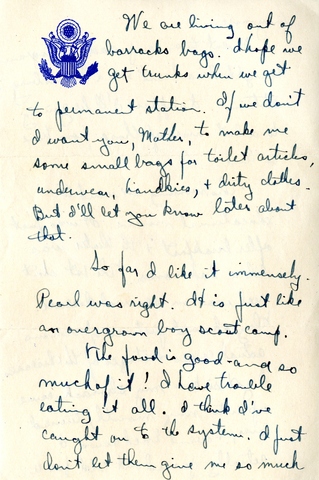 We are living out of
barracks bags. I hope we
get trunks when we get
to permanent station. If we don't
I want you, Mother, to make me
some small bags for toilet articles,
underwear, handkies, + dirty clothes.
But I'll let you know later about
that.
So far I like it immensely.
Pearl was right. It is just like
an overgrown boy scout camp.
The food is good - and so
much of it! I have trouble
eating it all. I think I've
caught on to the system. I just
don't let them give me so much